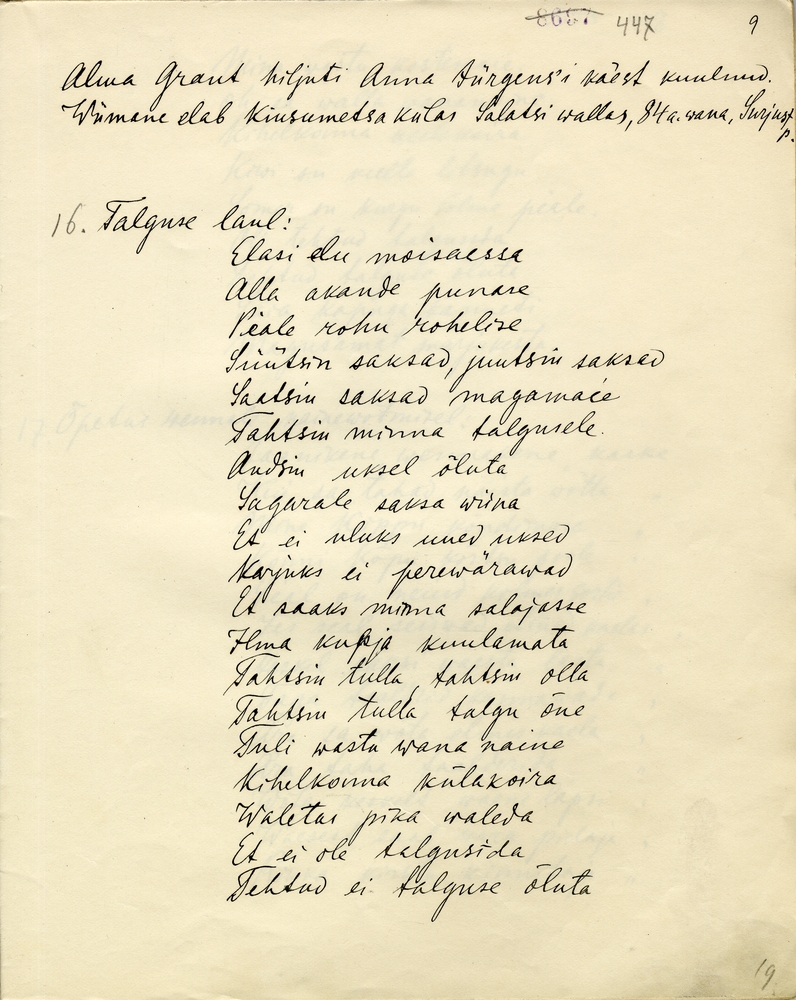 8657 447 9
Alma Grant hiljuti Anna Jürgens'i käest kuulnud.
Wiimane elab Kiusumetsa külas Salatsi wallas, 84 a. wana, Surjust
p.
16. Talguse laul:
Elasi elu moisaessa
Alla akande punase
Peale rohu rohelise
Süütsin saksad, juutsin saksad
Saatsin saksad magamaie
Tahtsin minna talgusele.
Andsin uksel õluta
Sagarale saksa wiina
Et ei uluks uued uksed
Karjuks ei perewärawad
Et saaks minna salajasse
Ilma kupja kuulamata
Tahtsin tulla, tahtsin olla
Tahtsin tulla talgu õue
Tuli wasta wana naine
Kihelkonna külakoira
Waletas pika waleda
Et ei ole talgusida
Tehtud ei talguse õluta
19